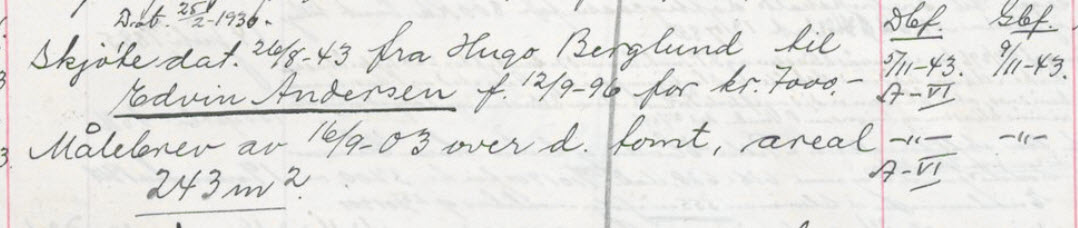 Dat. 25/2-1936. Dbf. Gbf.
Skjøte dat. 26/8-43 fra Hugo Berglund til 5/11-43. 9/11-43.
Edvin Andersen f 12/9-96 for kr. 7000.- A-VI
Målebrev av 16/9-03 over d. tomt, areal -"- -"-
243 m². A-VI